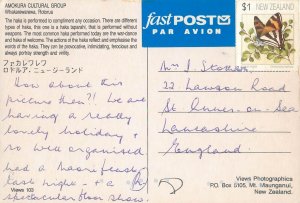 AMOKURA CULTURAL GROUP
Whakarewarewa, Rotorua
The haka is performed to compliment any occasion. There are different
types of haka, this one is a taparahi haka, performed without weapons.
The most common performed haka today are the war-dance
and haka of welcome. The actions of the haka reflect and emphasises the
words of the haka. They are provocative, intimidating, ferocious and
always portray strength and virility.
ファカレワレワ
ロトルア、ニュージーランド
How about this
picture then?! We are
having a really
lovely holiday &
so well organised
had a Maori feast
last night - + a
spectacular floor show.
Views 103
fastPOST
PAR AVION
$1 NEW ZEALAND
Mrs J. Stott
22 Lawson Road
St Annes-on-Sea
Lancashire
England.
Views Photographics
P.O. Box 5105, Mt. Maunganui,
New Zealand.